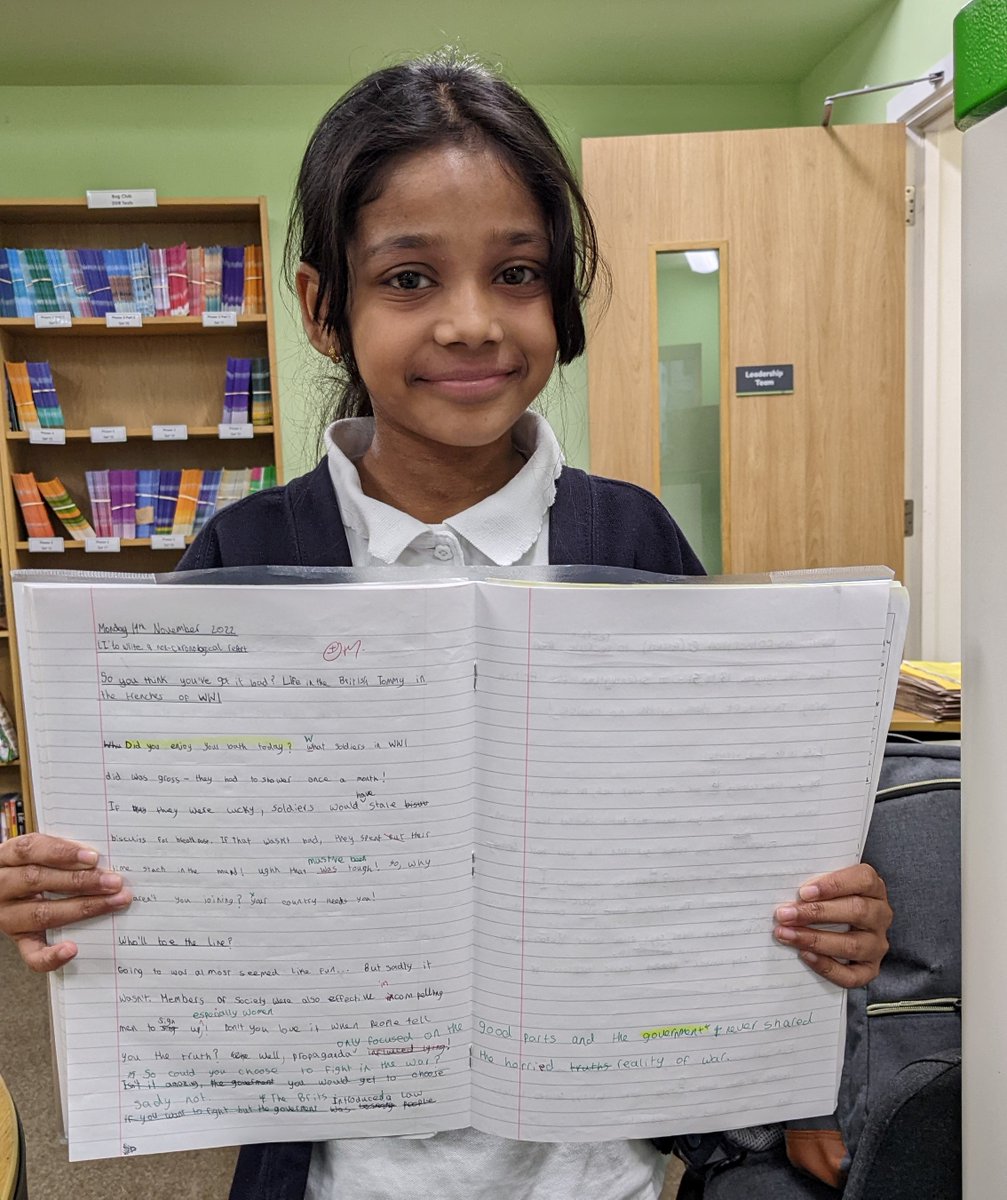 Bug Club
Leadership
Team
Monday 14th November 2022
LI: to write a non-chronological report
So you think you've got it bad? Life in the British Tommy in
the trenches of WW1
Did you enjoy your bath today? What soldiers in WW1
did was gross - they had to shower once a month!
If they were lucky, soldiers would have stale
biscuits for breakfast. If that wasn't bad, they spent their
time stuck in the mud! ughh that must've been tough! So, why
aren't you joining? Your country needs you!
Who'll toe the line?
Going to war almost seemed like fun... But sadly it
wasn't. Members of society were also effective in compelling
men to sign up, especially women! Don't you love it when people tell
you the truth? Well, propaganda only focused on the good parts and the government never shared
the horried truths reality of war.
So could you choose to fight in the war?
Isn't it amazing, the goverment you would get to choose
sady not. The Brits introduced a law
if you want to fight but the goverment was people